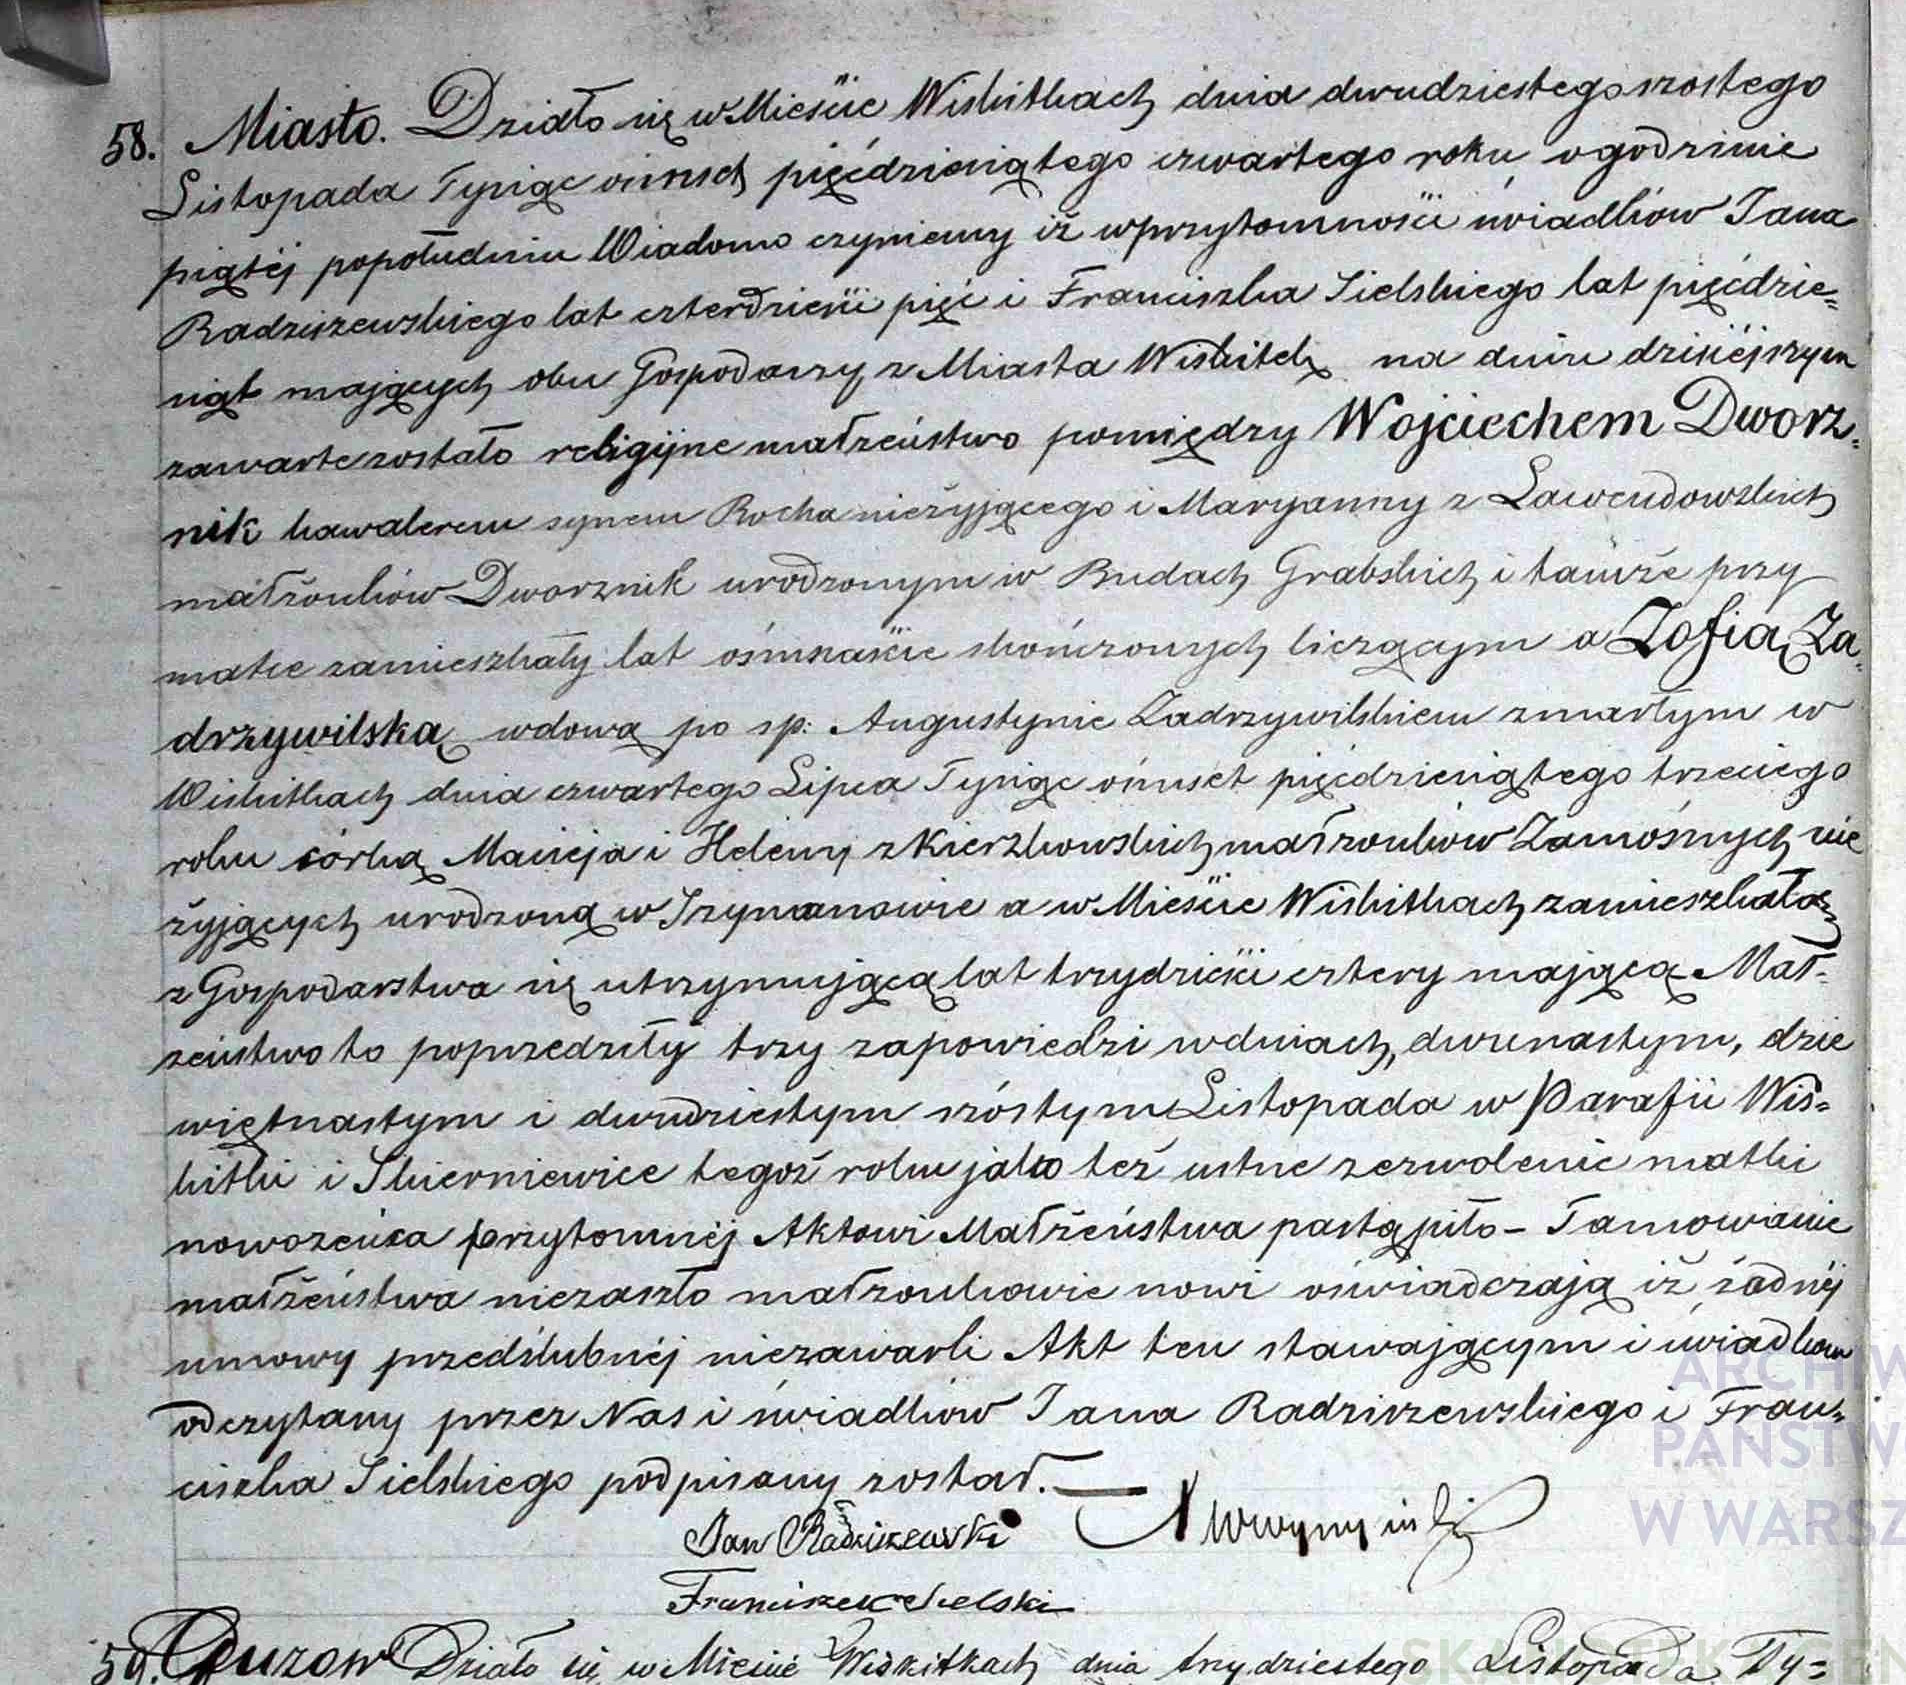 58. Miasto. Działo się w Mieście Wiskitkach dnia dwudziestego szostego
Listopada Tysiąc ośmset pięćdziesiątego czwartego roku o godzinie
piątéj popołudniu Wiadomo czyniemy iż w przytomności świadków Jana
Radziszewskiego lat czterdzieści pięć i Franciszka Sielskiego lat pięćdzie=
siąt mających obu Gospodarzy z Miasta Wiskitek na dniu dzisiéjszym
zawarte zostało religijne małżeństwo pomiędzy Wojciechem Dworz=
nik kawalerem synem Rocha nieżyjącego i Maryanny z Lawendowskich
małżonków Dworznik urodzonym w Budach Grabskich i tamże przy
matce zamieszkały lat ośmnaście skończonych liczącym a Zofią Za=
drzywilską wdową po sp: Augustynie Zadrzywilskiem zmarłym w
Wiskitkach dnia czwartego Lipca Tysiąc ośmset pięćdziesiątego trzeciego
roku córką Macieja i Heleny z Kierzkowskich małżonków Zamośnych nie
żyjących urodzoną w Szymanowie a w Mieście Wiskitkach zamieszkałą
z Gospodarstwa się utrzymującą lat trzydzieści cztery mającą Mał=
żeństwo to poprzedziły trzy zapowiedzi w dniach dwunastym, dzie
więtnastym i dwudziestym szóstym Listopada w Parafii Wis=
kitki i Skierniewice tegoż roku jako też ustne zezwolenie matki
nowożeńca przytomnéj Aktowi Małżeństwa nastąpiło – Tamowanie
małżeństwa niezaszło małżonkowie nowi oświadczają iż żadnéj
umowy przedślubnéj niezawarli Akt ten stawającym i świadkom
odczytany przez Nas i świadków Jana Radziszewskiego i Fran=
ciszka Sielskiego podpisany został.
Jan Radziszewski
Franciszek Sielski
59. Guzow Działo się w Mieście Wiskitkach dnia trzydziestego Listopada Ty=
ARCHIW
PAŃSTW
W WARSZ
SKANOTEKA GEN